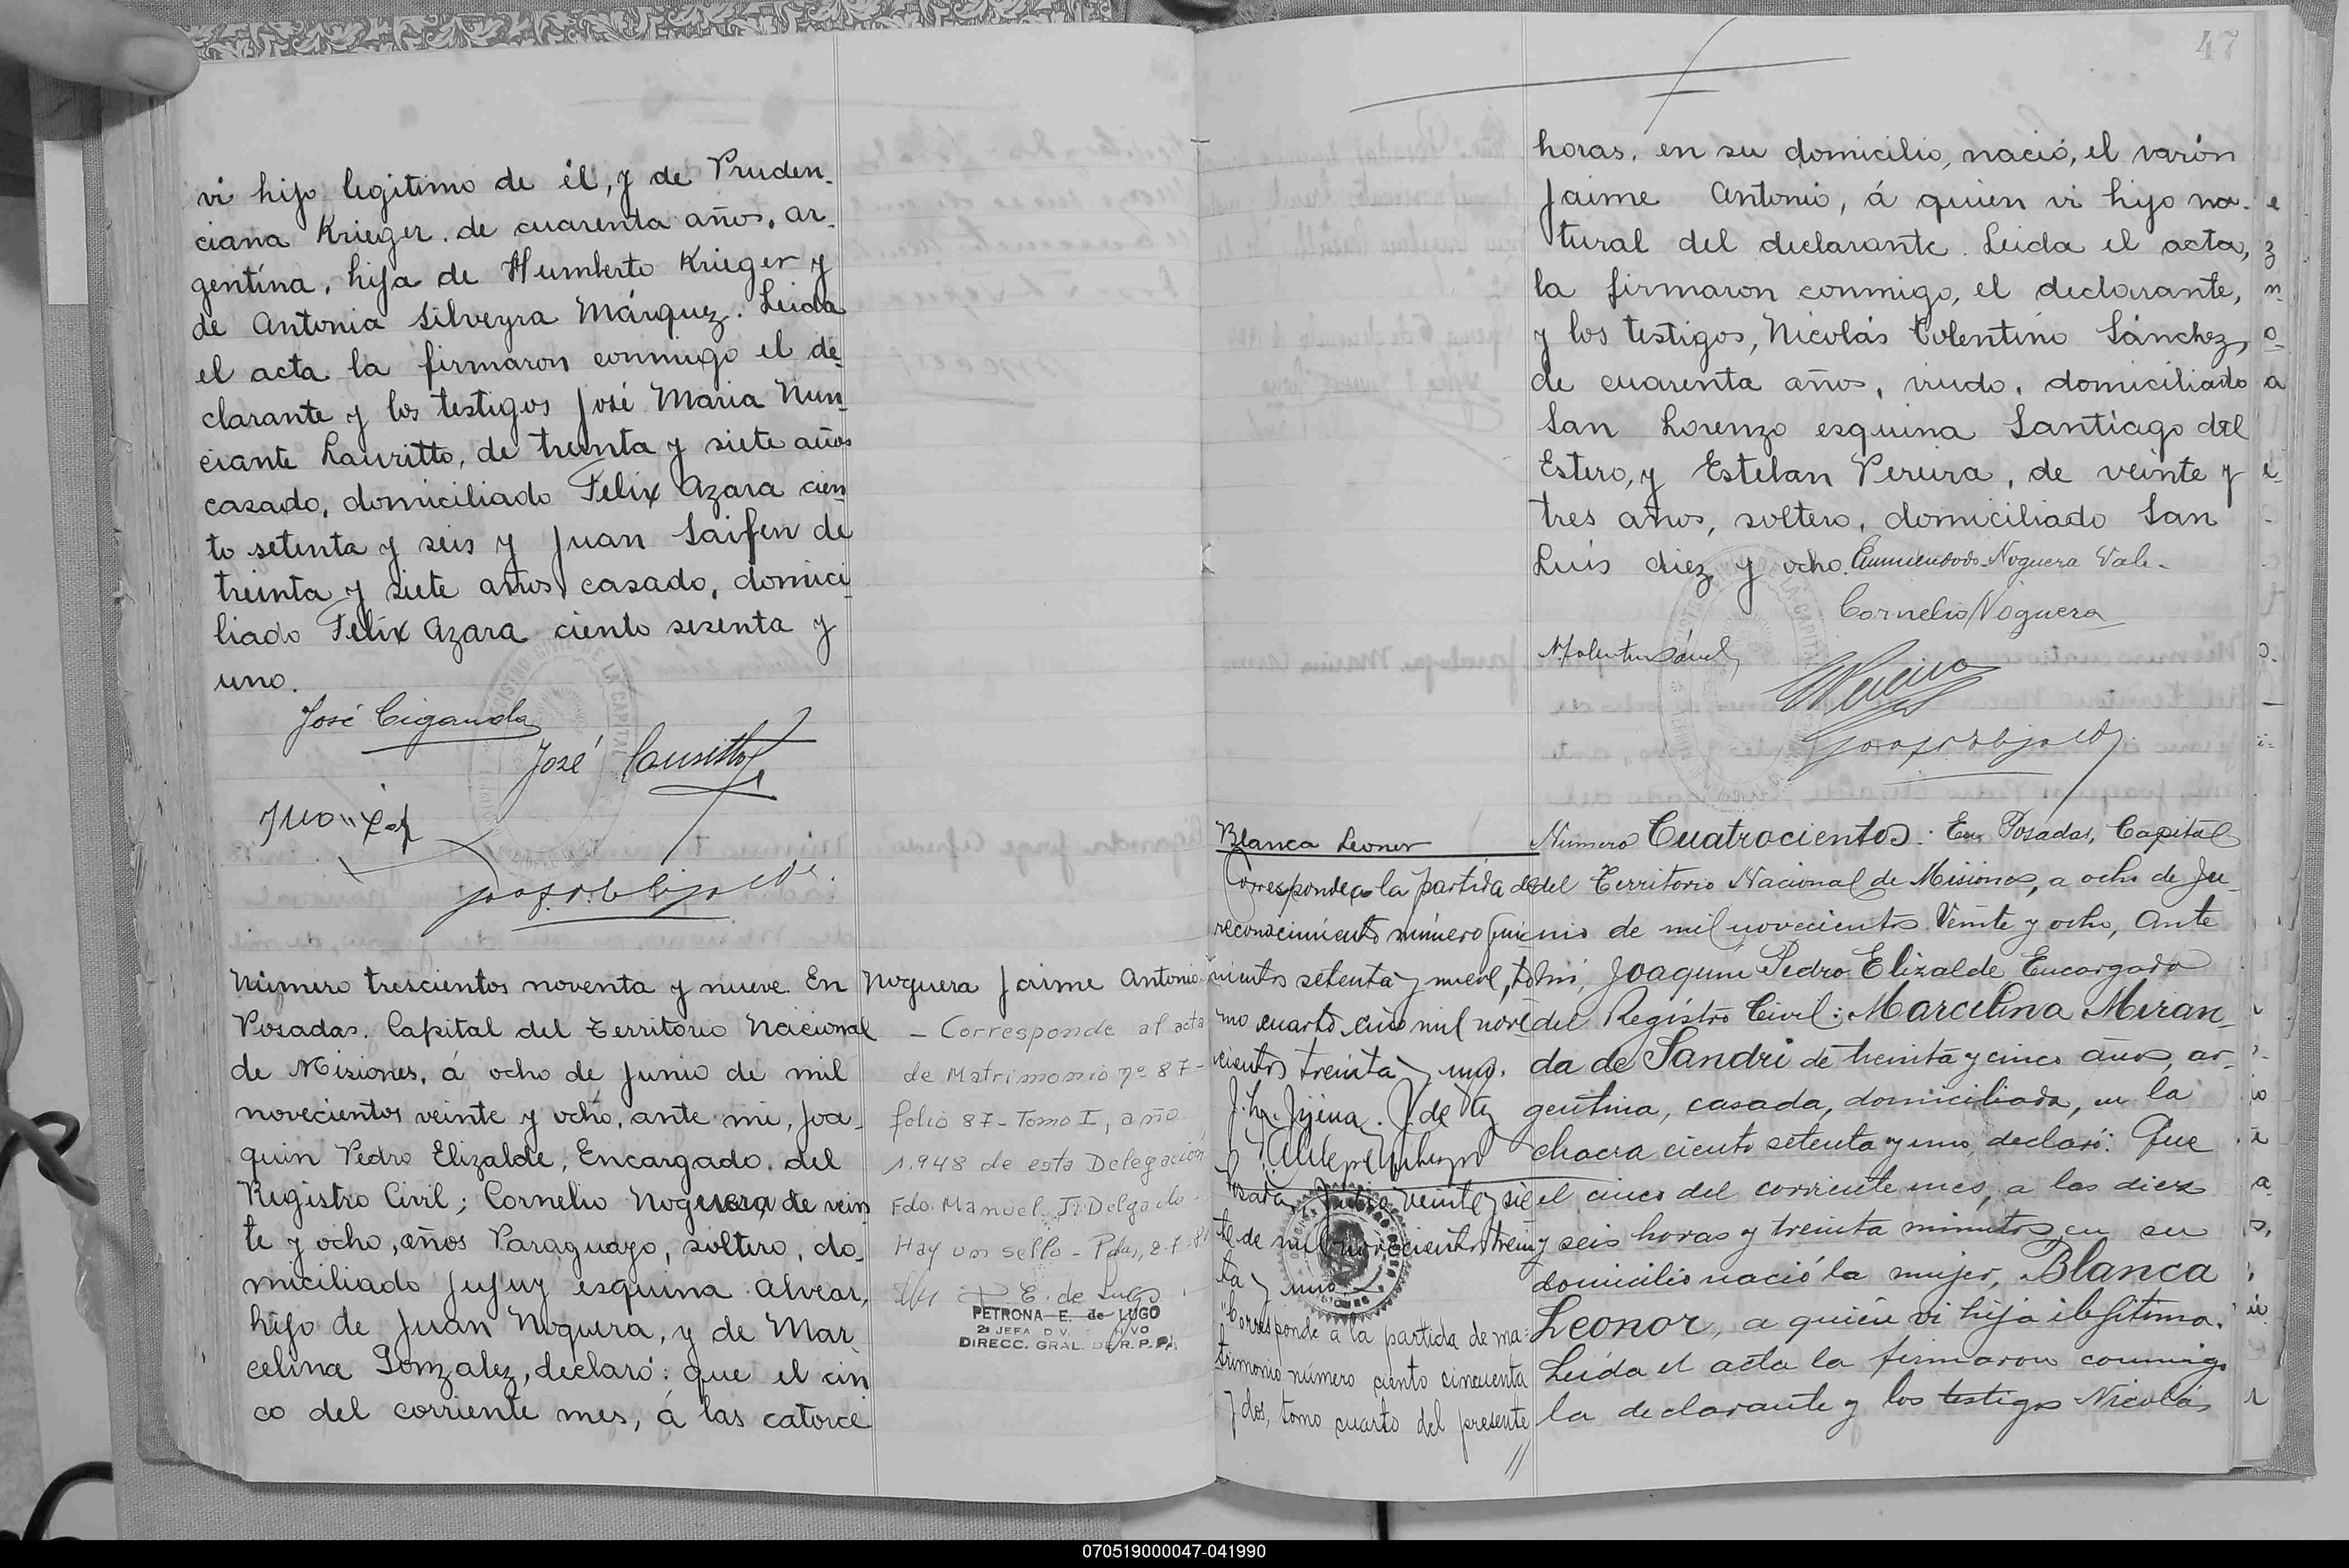 47
vi hijo legitimo de él, y de Pruden-
ciana Krieger. de cuarenta años, ar-
gentina, hija de Humberto Krieger y
de Antonia Silveyra Márquez. Leida
el acta la firmaron conmigo el de-
clarante y los testigos José Maria Nun-
ciante Lauritto, de treinta y siete años
casado, domiciliado Felix Azara cien-
to setenta y seis y Juan Saifen de
treinta y siete años, casado, domici-
liado Felix Azara ciento sesenta y
uno.
José Ciganda
José Lauritto
Número trescientos noventa y nueve. En
Posadas, Capital del Territorio Nacional
de Misiones, á ocho de Junio de mil
novecientos veinte y ocho, ante mi, Joa-
quin Pedro Elizalde, Encargado del
Registro Civil; Cornelio Noguera, de vein-
te y ocho, años Paraguayo, soltero, do-
miciliado Jujuy esquina Alvear,
hijo de Juan Noguera, y de Mar-
celina Gonzalez, declaró: que el cin-
co del corriente mes, á las catorce
Noguera Jaime Antonio
- Corresponde al acta
de Matrimonio nº 87-
folio 87- Tomo I, año
1.948 de esta Delegación
Fdo. Manuel J. Delgado-
Hay un sello - Pdas, 2-7-80
E. de Lugo
PETRONA E. de LUGO
2ª JEFA DIV.
DIRECC. GRAL. DE R. P. P.
horas, en su domicilio, nació, el varón
Jaime Antonio, á quien vi hijo na-
tural del declarante. Leida el acta,
la firmaron conmigo, el declarante,
y los testigos, Nicolás Tolentino Sánchez,
de cuarenta años, viudo, domiciliado
San Lorenzo esquina Santiago del
Estero, y Esteban Pereira, de veinte y
tres años, soltero, domiciliado San
Luis diez y ocho. Enmendado-Noguera Vale-
Cornelio Noguera
Blanca Leonor
Corresponde a la partida de
reconocimiento número quin
nientos setenta y nueve, to
mo cuarto año mil nove
cientos treinta y uno.
Posadas, Julio veinte y sie
te de mil novecientos trein
ta y uno.
"Corresponde a la partida de ma-
trimonio número ciento cincuenta
y dos, tomo cuarto del presente
//
Número Cuatrocientos: En Posadas, Capital
del Territorio Nacional de Misiones, a ocho de Ju-
nio de mil novecientos Veinte y ocho, Ante
mi, Joaquin Pedro Elizalde Encargado
del Registro Civil: Marcelina Miran-
da de Sandri de treinta y cinco años, ar-
gentina, casada, domiciliada, en la
chacra ciento setenta y uno, declaró: Que
el cinco del corriente mes, a las diez
y seis horas y treinta minutos, en su
domicilio nació la mujer, Blanca
Leonor, a quien vi hija ilegítima.
Leida el acta la firmaron conmigo
la declarante y los testigos Nicolás
070519000047-041990